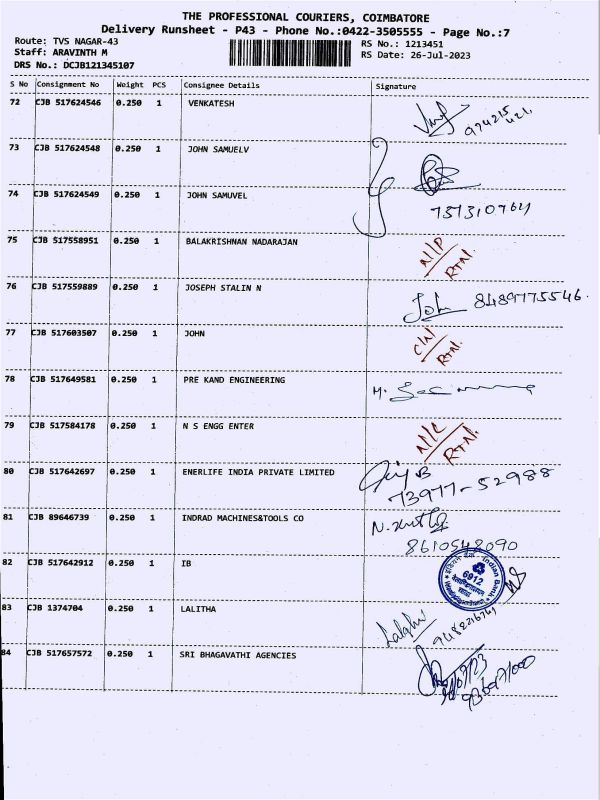 THE PROFESSIONAL COURIERS, COIMBATORE
Delivery Runsheet - P43 - Phone No.:0422-3505555 - Page No.:7
Route: TVS NAGAR-43 RS No.: 1213451
Staff: ARAVINTH M RS Date: 26-Jul-2023
DRS No.: DCJB121345107
S No Consignment No Weight PCS Consignee Details Signature
72 CJB 517624546 0.250 1 VENKATESH
73 CJB 517624548 0.250 1 JOHN SAMUELV
74 CJB 517624549 0.250 1 JOHN SAMUVEL
737310764
75 CJB 517558951 0.250 1 BALAKRISHNAN NADARAJAN
76 CJB 517559889 0.250 1 JOSEPH STALIN N John 8489775546
77 CJB 517603507 0.250 1 JOHN
78 CJB 517649581 0.250 1 PRE KAND ENGINEERING
79 CJB 517584178 0.250 1 N S ENGG ENTER
80 CJB 517642697 0.250 1 ENERLIFE INDIA PRIVATE LIMITED
73977-52988
81 CJB 89646739 0.250 1 INDRAD MACHINES&TOOLS CO
8610548090
82 CJB 517642912 0.250 1 IB
Indian Bank
6912
83 CJB 1374704 0.250 1 LALITHA
84 CJB 517657572 0.250 1 SRI BHAGAVATHI AGENCIES